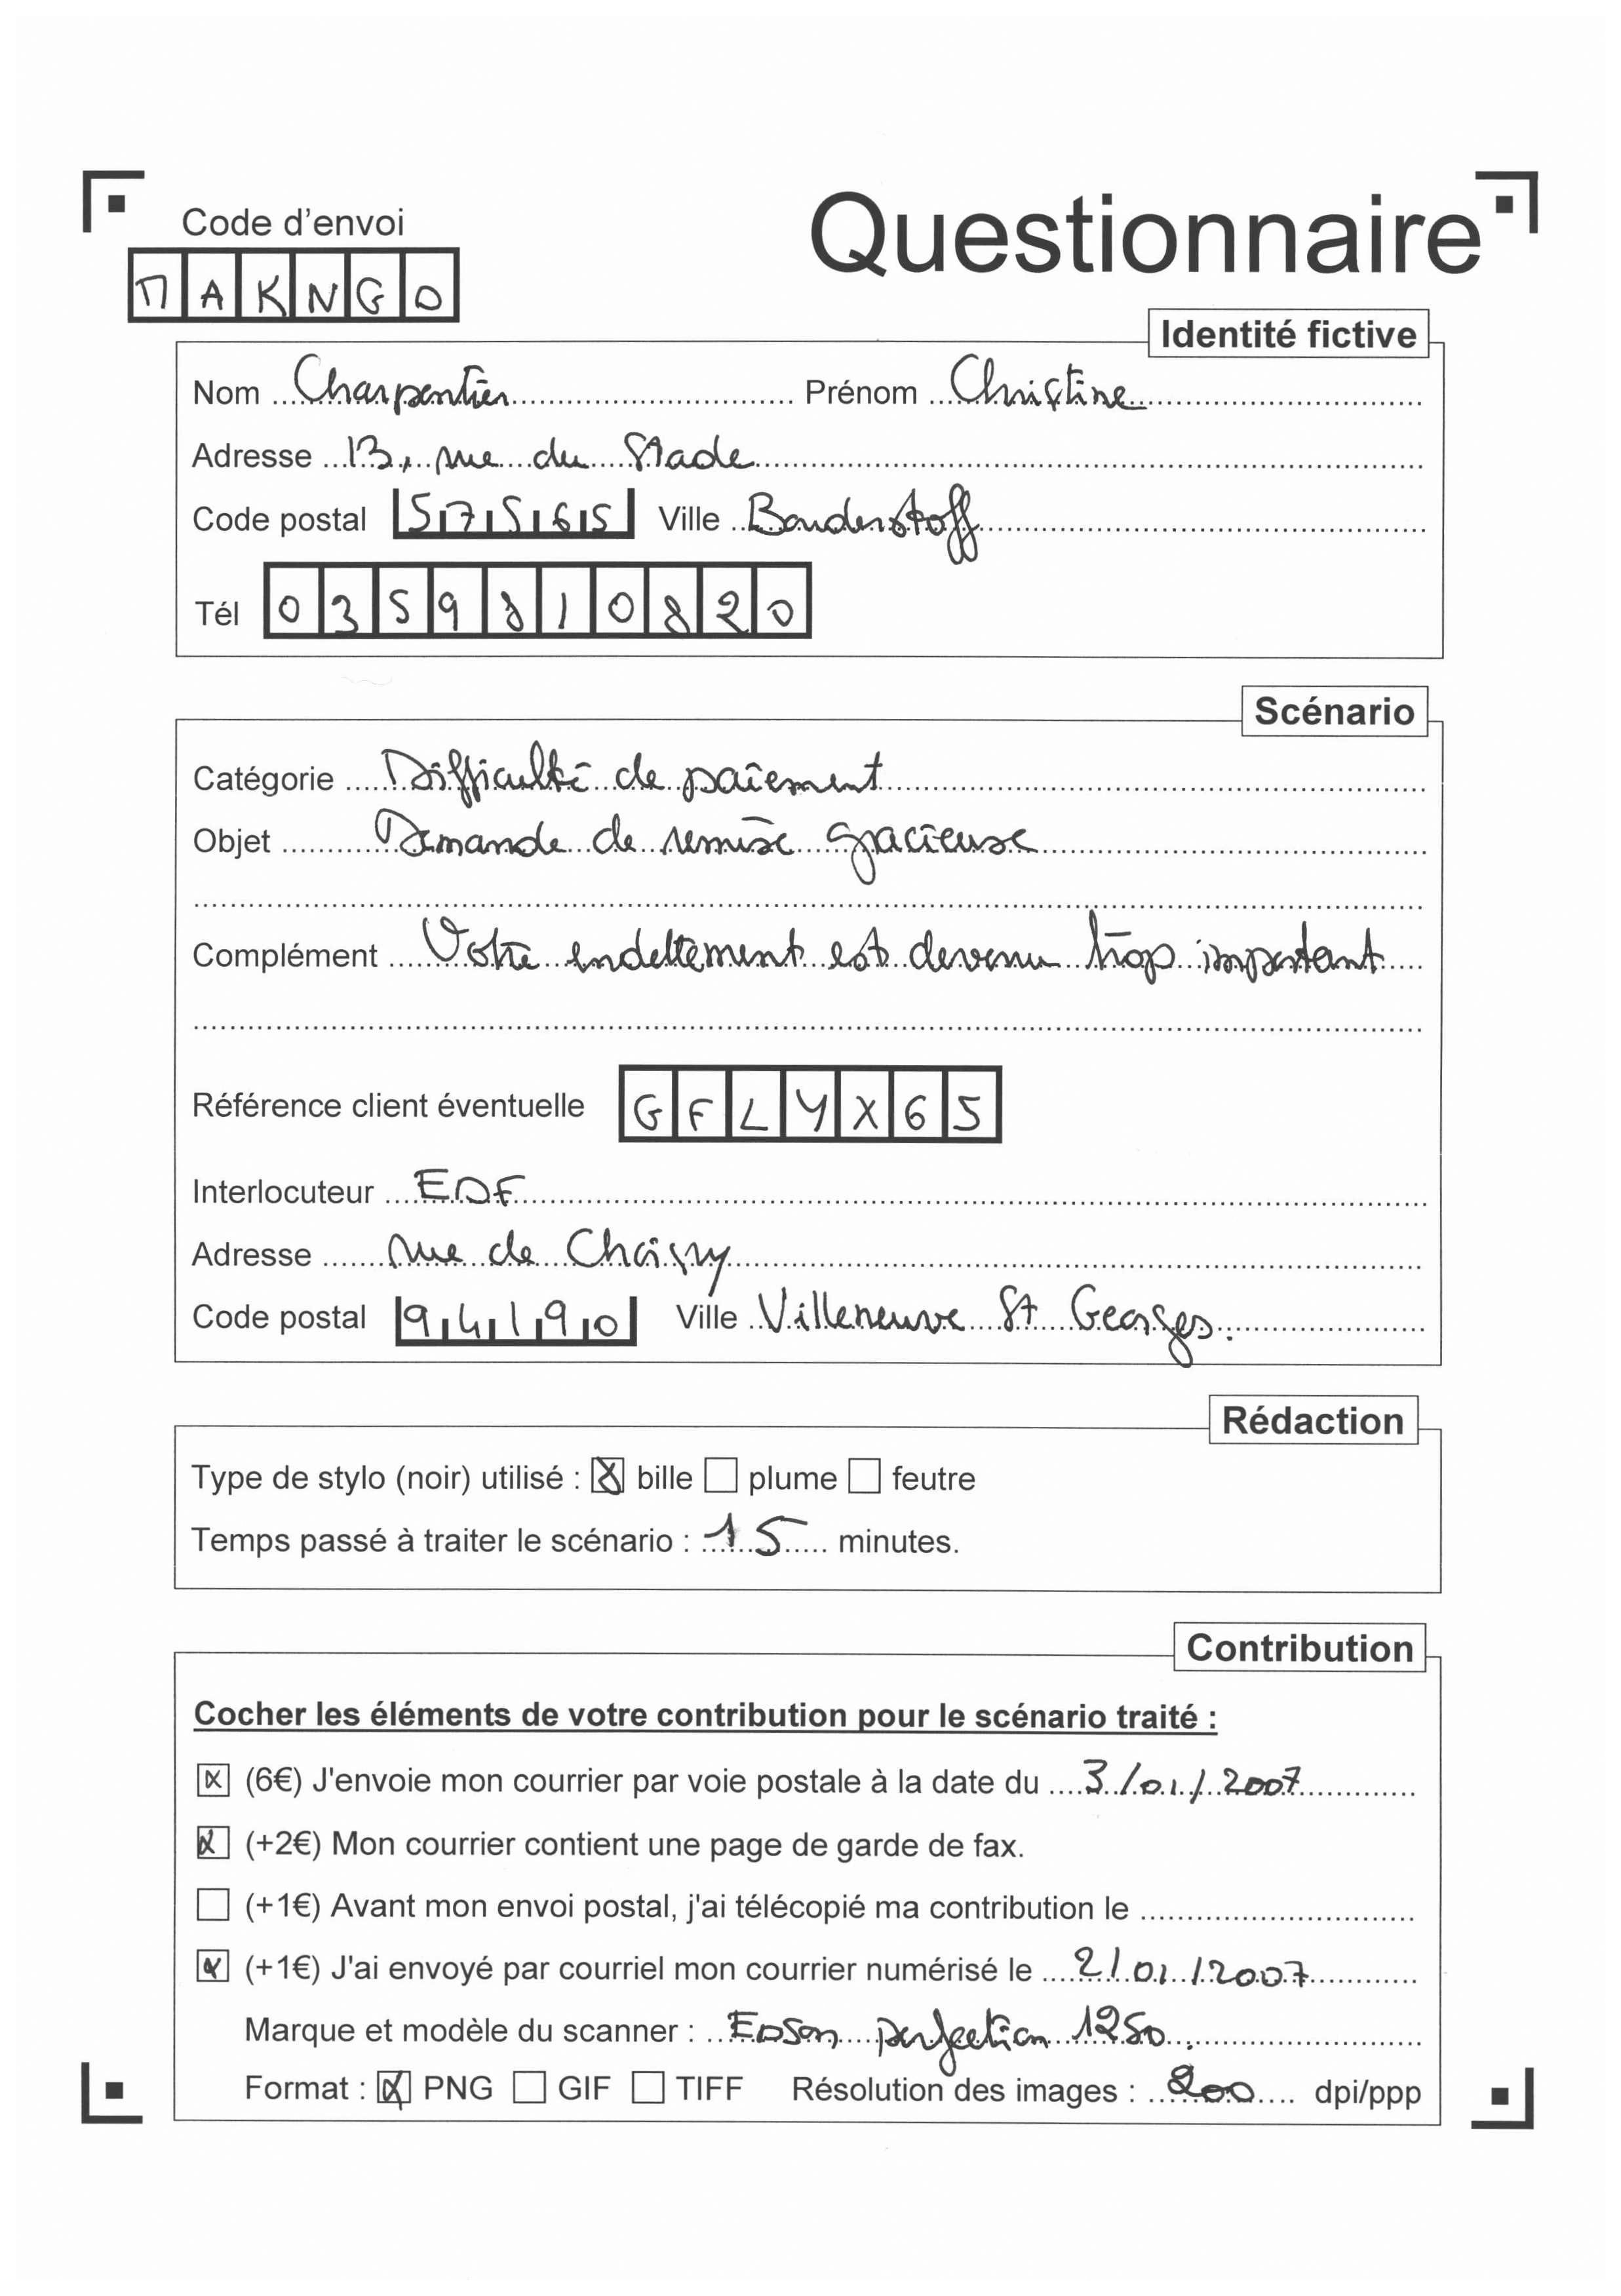 Code d'envoi
Questionnaire
MAKNGO
Identité fictive
Nom Charpentier Prénom Christine
Adresse 13, rue du Stade
Code postal 57565 Ville Bouderstoff
Tél 0359810820
Scénario
Catégorie Difficulté de paiement
Objet Demande de remise gracieuse
Complément Votre endettement est devenu trop important
Référence client éventuelle GFLYX65
Interlocuteur EDF
Adresse rue de Choisy
Code postal 94190 Ville Villeneuve St Georges.
Rédaction
Type de stylo (noir) utilisé : ☒ bille ☐ plume ☐ feutre
Temps passé à traiter le scénario : 15 minutes.
Contribution
Cocher les éléments de votre contribution pour le scénario traité :
☒ (6€) J'envoie mon courrier par voie postale à la date du 3/01/2007
☒ (+2€) Mon courrier contient une page de garde de fax.
☐ (+1€) Avant mon envoi postal, j'ai télécopié ma contribution le
☒ (+1€) J'ai envoyé par courriel mon courrier numérisé le 2/01/2007
Marque et modèle du scanner : Epson perfection 1250.
Format : ☒ PNG ☐ GIF ☐ TIFF Résolution des images : 200 dpi/ppp